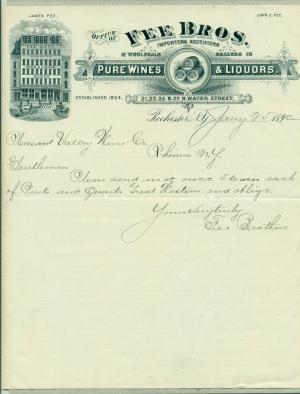 JAMES FEE.
JOHN C. FEE.
OFFICE OF
FEE BROS.
IMPORTERS RECTIFIERS
& WHOLESALE DEALERS IN
PURE WINES & LIQUORS.
ESTABLISHED 1864.
21, 23, 25 & 27 N. WATER STREET.
Rochester, N.Y. 25 1890
Pleasant Valley Wine Co
Rheims N.Y.
Gentlemen
Please send us at once 5 cases each
of Pints and Quarts Great Western and oblige
Yours truly
Fee Brothers